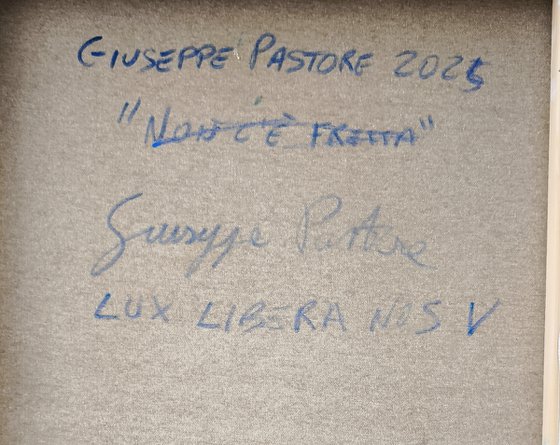 GIUSEPPE PASTORE 2025
"NON C'È FRETTA"
Giuseppe Pastore
LUX LIBERA NOS V